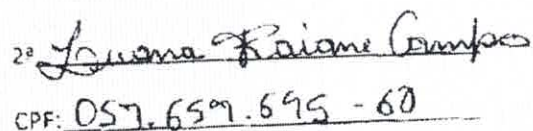 2ª Luana Raiane Campos
CPF: 057.657.695 - 60